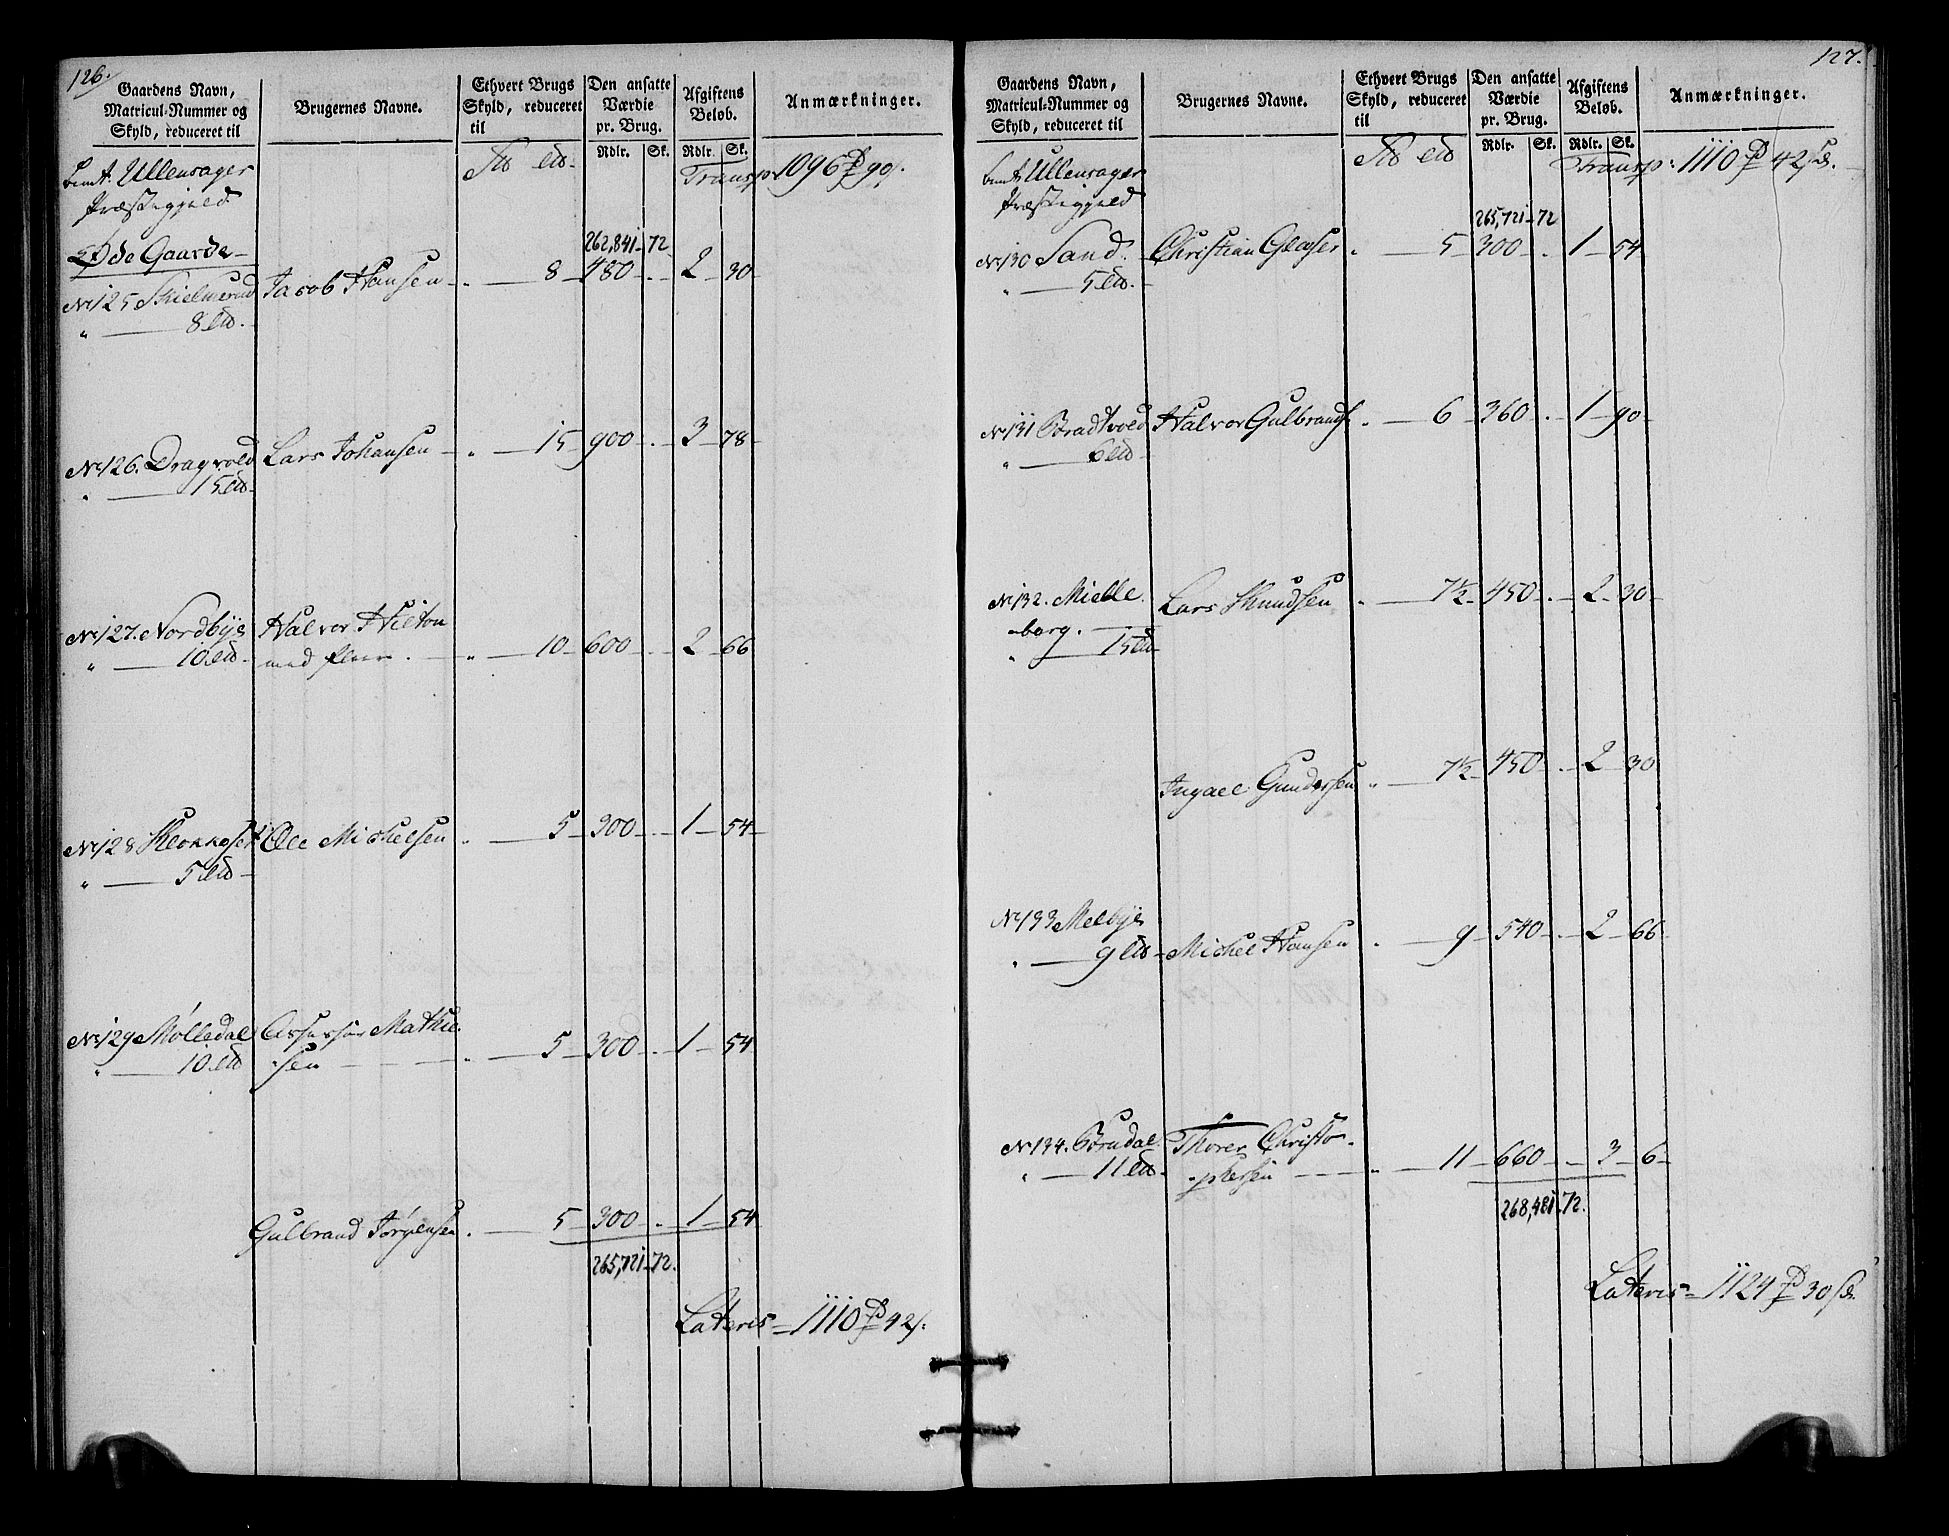 126.
Gaardens Navn,
Matricul-Nummer og
Skyld, reduceret til
Brugernes Navne.
Ethvert Brugs
Skyld, reduceret
til
Den ansatte
Værdie
pr. Brug.
Afgiftens
Beløb.
Anmærkninger.
Rdlr. Sk. Rdlr. Sk.
Ullensager Transp. 1096 90
Præstegjeld
Øde Gaarde 262,841 72
8 480 2 30
No 125 Skielmerud Jacob Hansen
8
No 126. Dragvold Lars Johansen 15 900 3 78
15
No 127. Nordbye Halvor Hilton
10 med fleere. 10 600 2 66
No 128 Ole Michelsen 5 300 1 54
5
No 129 Mølledal Assessor Mathie-
10 sen 5 300 1 54
Gulbrand Jørgensen 5 300 1 54
265,721 72.
Lateris 1110 42
127.
Gaardens Navn,
Matricul-Nummer og
Skyld, reduceret til
Brugernes Navne.
Ethvert Brugs
Skyld, reduceret
til
Den ansatte
Værdie
pr. Brug.
Afgiftens
Beløb.
Anmærkninger.
Rdlr. Sk. Rdlr. Sk.
Ullensager Transp: 1110 42
Præstegjeld
265,721 72
No 130 Sand. Christian Glaser 5 300 1 54
5
No 131 Bradtvold Halvor Gulbrands. 6 360 1 90
6
No 132. Mielle Lars Knudsen 7½ 450 2 30
borg.
15
Ingael Gundersen 7½ 450 2 30
No 133 Melbye
9 Michel Hansen 9 540 2 66
No 134. Brudal Thorer Christo-
11 phersen 11 660 3 6
268,481 72.
Lateris 1124 30